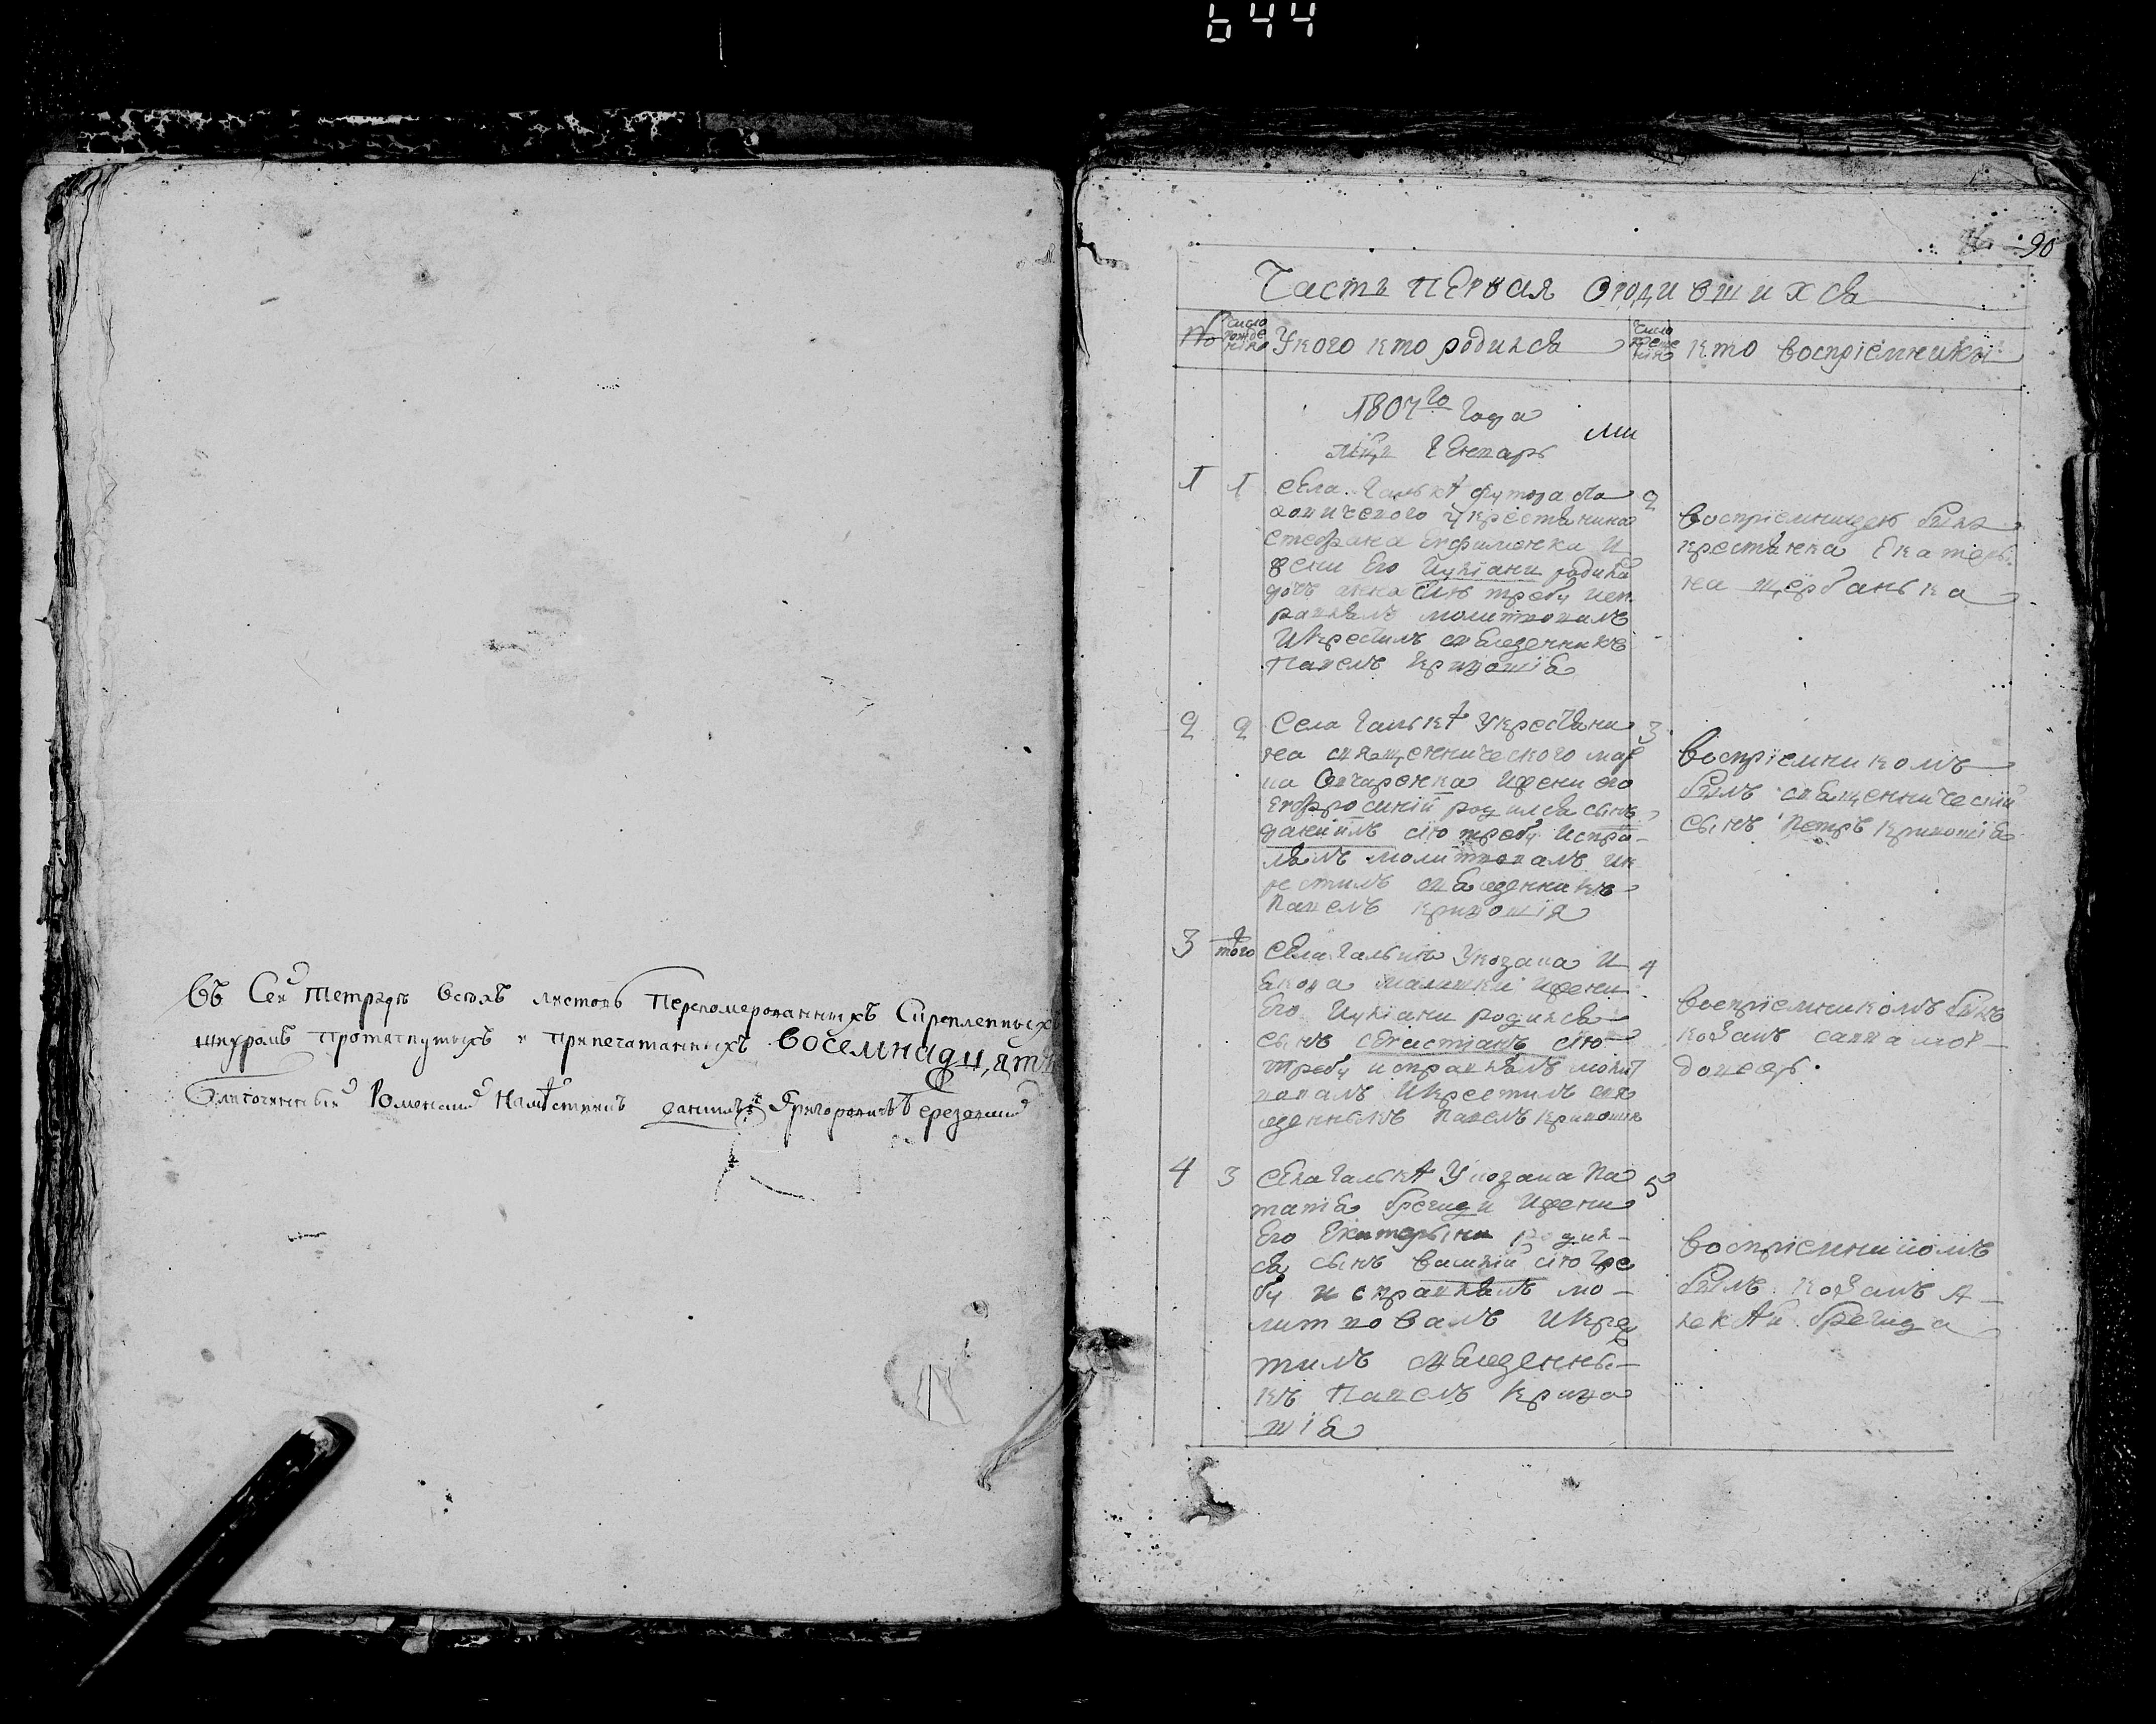 644
Въ Сей тетради всѣхъ листовъ перенумерованныхъ Скрепленныхъ
шнуромъ протягнутыхъ и припечатанныхъ восемнадцять
Благочинный Роменский Намѣстникъ Григоровичъ Березовский
90
Часть первая о родившихся
№ Число рожденія У кого кто родился Число крещенія кто воспріемники
1807го года
мцъ Генваръ
1 1 села Галки 2
крестянина
Стефана Ефименка и
жени его Иуліани родила
дочь Анна сію требу исп
равлялъ молитвовалъ
и крестилъ священникъ
Павелъ Кривошія
воспріемницею была
крестянка Екатери
на Щербанька
2 2 Села Галки у крестяни 3
на священнического мар
ка Овчаренка и жени его
Евфросиніи родился сынъ
Даніилъ сію требу испра
лялъ молитвовалъ и к
рестилъ священникъ
Павелъ Кривошія
воспріемникомъ
былъ священническій
сынъ Петръ Кривошія
3 того Села Галки у козака И 4
акова Малишки и жени
его Иуліани родился
сынъ Севастіанъ сію
требу исправлялъ молит
вовалъ и крестилъ свя
щенныкъ Павелъ Кривошия
воспріемникомъ былъ
козакъ Савва
донецъ.
4 3 Села Галки у козака Па 5
татія Брегиди и жени
его Екатерыни родил
ся сынъ Василій сію тре
бу исправлялъ мо
литвовалъ и крес
тилъ священны
къ Павелъ Криво
шія
воспріемникомъ
былъ козакъ А
лексѣй Брегида